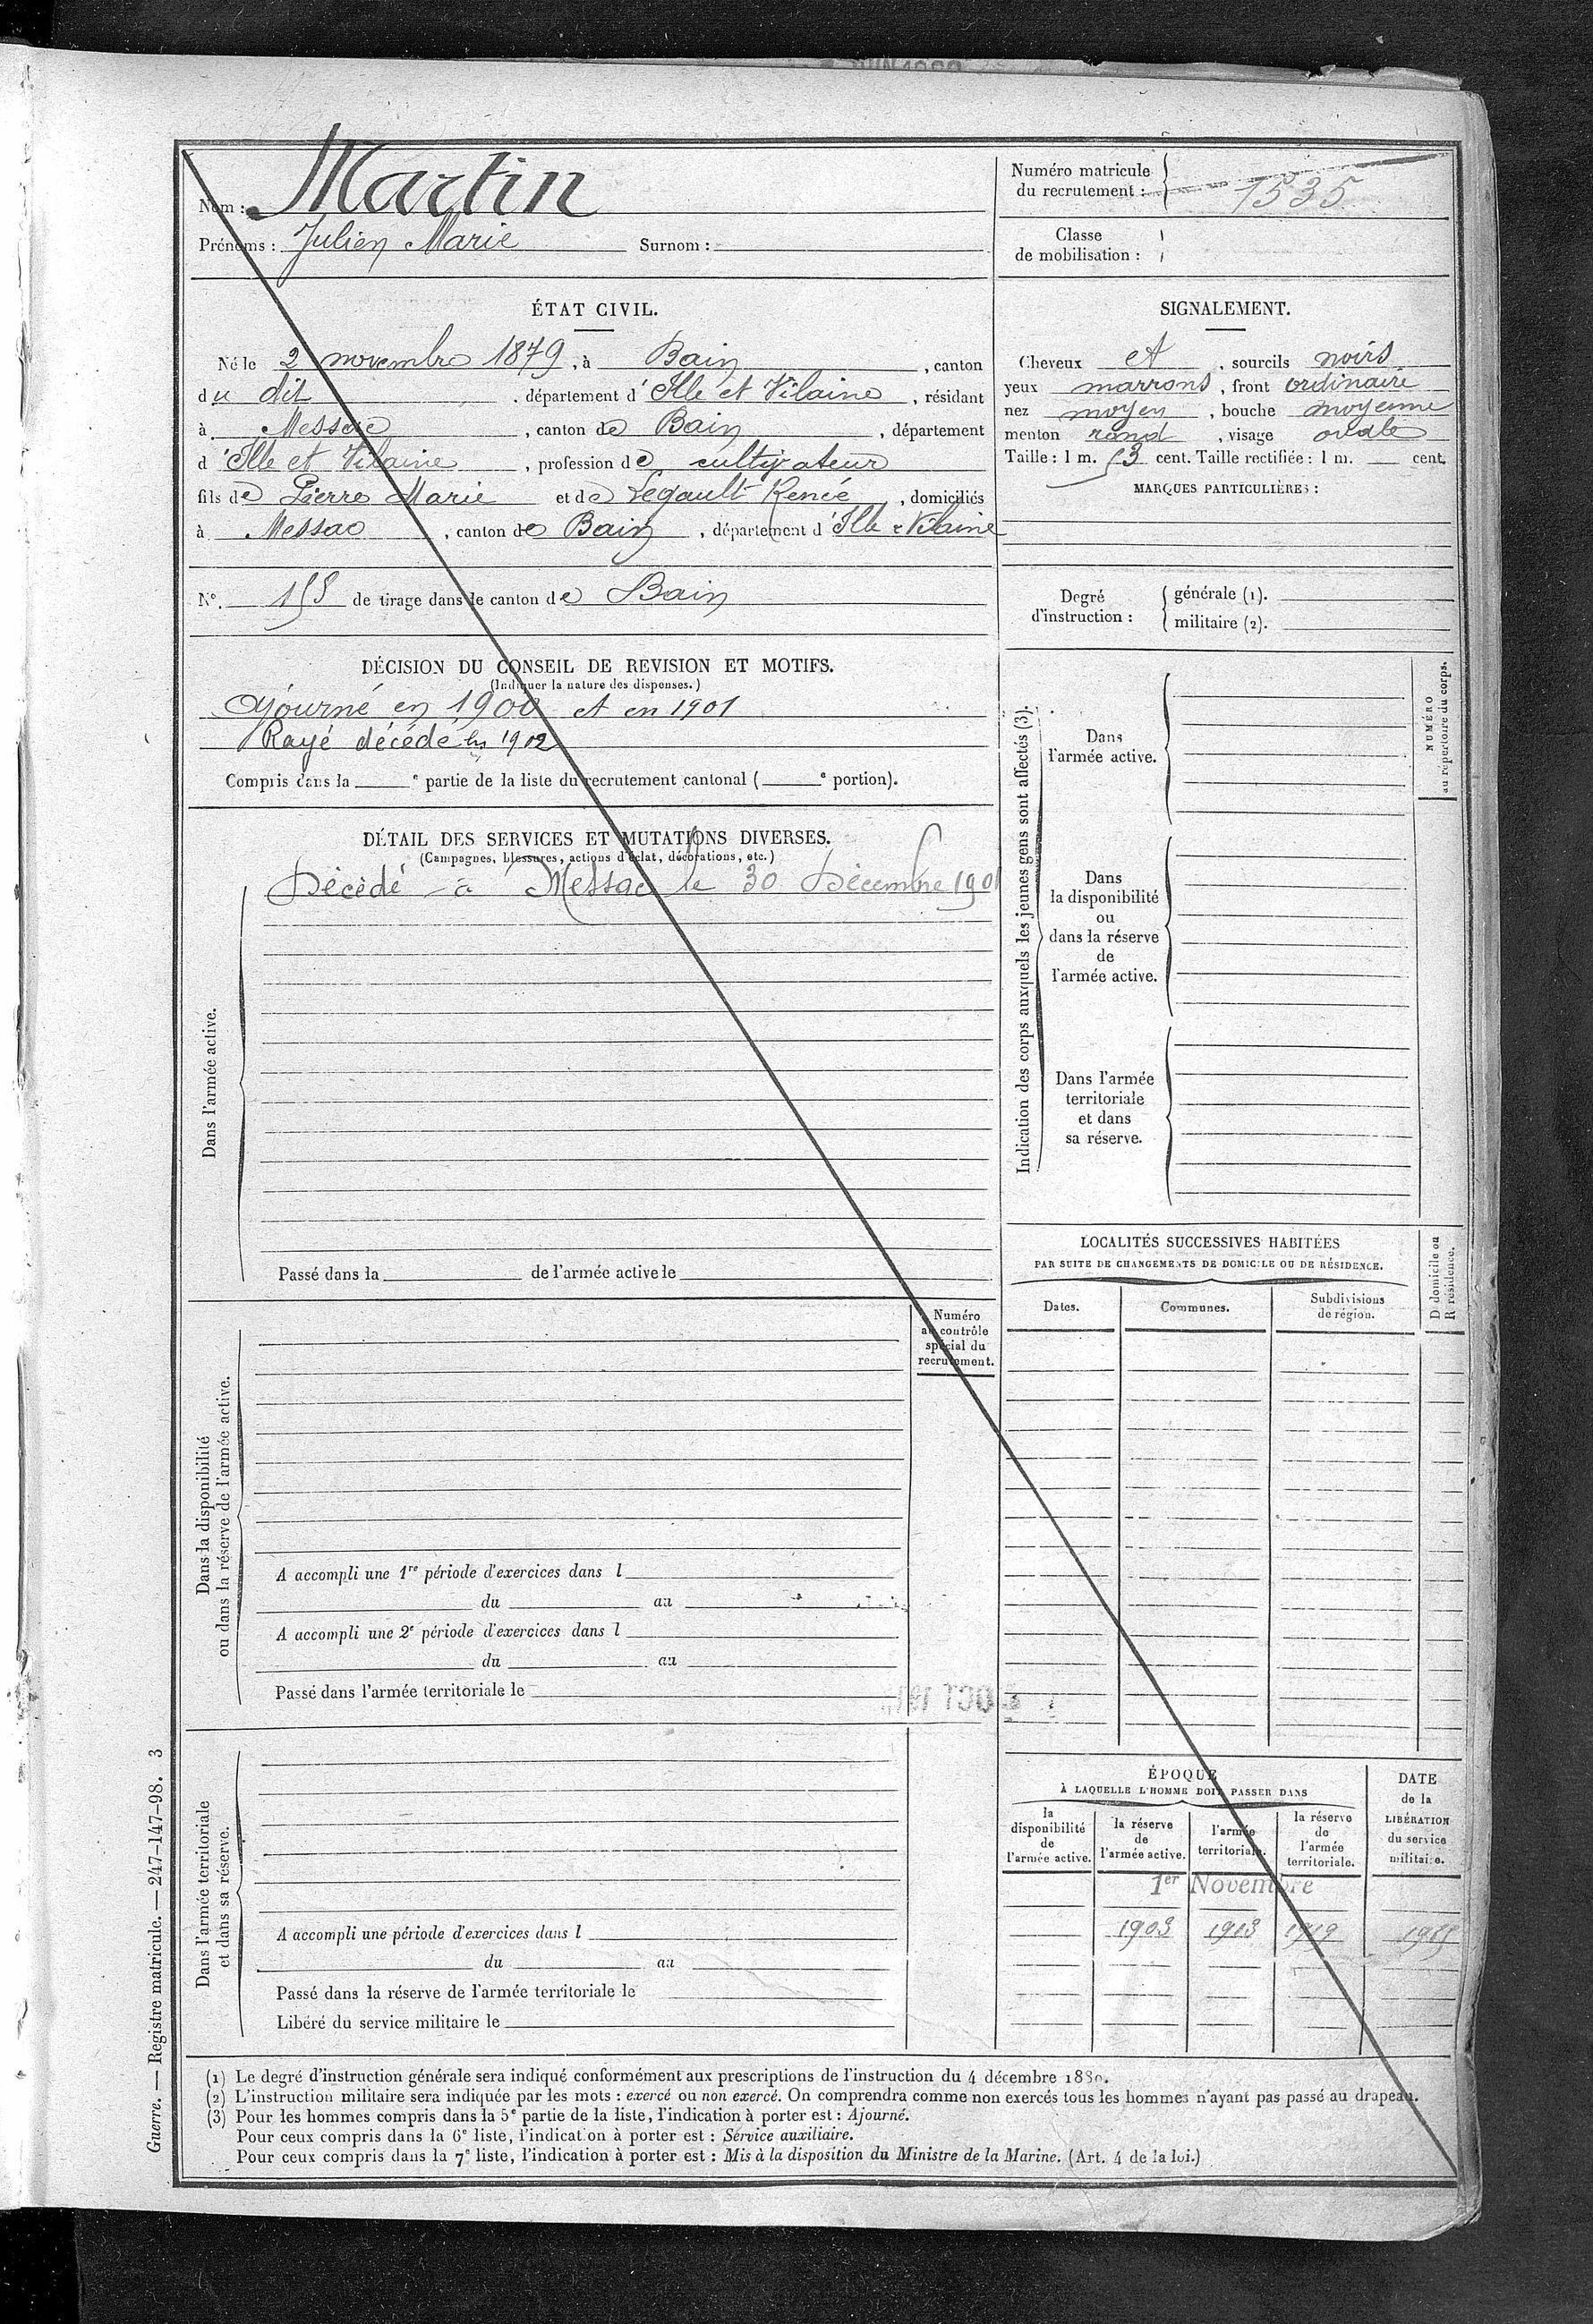 Nom : Martin
Prénoms : Julien Marie Surnom :
Numéro matricule du recrutement : 1535
Classe de mobilisation :
ÉTAT CIVIL.
Né le 2 novembre 1879, à Bain, canton
du dit, département d'Ille et Vilaine, résidant
à Messac, canton de Bain, département
d'Ille et Vilaine, profession de cultivateur
fils de Pierre Marie et de Legault Renée, domiciliés
à Messac, canton de Bain, département d'Ille & Vilaine
N°. 155 de tirage dans le canton de Bain
SIGNALEMENT.
Cheveux et, sourcils noirs
yeux marrons, front ordinaire
nez moyen, bouche moyenne
menton rond, visage ovale
Taille : 1 m. 53 cent. Taille rectifiée : 1 m. — cent.
MARQUES PARTICULIÈRES :
Degré d'instruction :
générale (1).
militaire (2).
DÉCISION DU CONSEIL DE REVISION ET MOTIFS.
(Indiquer la nature des dispenses.)
Ajourné en 1900 et en 1901
Rayé décédé en 1902
Compris dans la e partie de la liste du recrutement cantonal ( e portion).
DÉTAIL DES SERVICES ET MUTATIONS DIVERSES.
(Campagnes, blessures, actions d'éclat, décorations, etc.)
Dans l'armée active.
Décédé à Messac le 30 Décembre 1901
Passé dans la de l'armée active le
Dans la disponibilité
ou dans la réserve de l'armée active.
Numéro
au contrôle
spécial du
recrutement.
A accompli une 1re période d'exercices dans l
du au
A accompli une 2e période d'exercices dans l
du au
Passé dans l'armée territoriale le
Dans l'armée territoriale
et dans sa réserve.
A accompli une période d'exercices dans l
du au
Passé dans la réserve de l'armée territoriale le
Libéré du service militaire le
Indication des corps auxquels les jeunes gens sont affectés (3).
NUMÉRO
au répertoire du corps.
Dans
l'armée active.
Dans
la disponibilité
ou
dans la réserve
de
l'armée active.
Dans l'armée
territoriale
et dans
sa réserve.
LOCALITÉS SUCCESSIVES HABITÉES
PAR SUITE DE CHANGEMENTS DE DOMICILE OU DE RÉSIDENCE.
Dates. Communes. Subdivisions de région.
D domicile ou
R résidence.
ÉPOQUE
À LAQUELLE L'HOMME DOIT PASSER DANS
la disponibilité de l'armée active.
la réserve de l'armée active.
l'armée territoriale.
la réserve de l'armée territoriale.
DATE de la LIBÉRATION du service militaire.
1er Novembre
1903 1913 1919
(1) Le degré d'instruction générale sera indiqué conformément aux prescriptions de l'instruction du 4 décembre 1889.
(2) L'instruction militaire sera indiquée par les mots : exercé ou non exercé. On comprendra comme non exercés tous les hommes n'ayant pas passé au drapeau.
(3) Pour les hommes compris dans la 5e partie de la liste, l'indication à porter est : Ajourné.
Pour ceux compris dans la 6e liste, l'indication à porter est : Service auxiliaire.
Pour ceux compris dans la 7e liste, l'indication à porter est : Mis à la disposition du Ministre de la Marine. (Art. 4 de la loi.)
Guerre. — Registre matricule. — 247-147-98. 3